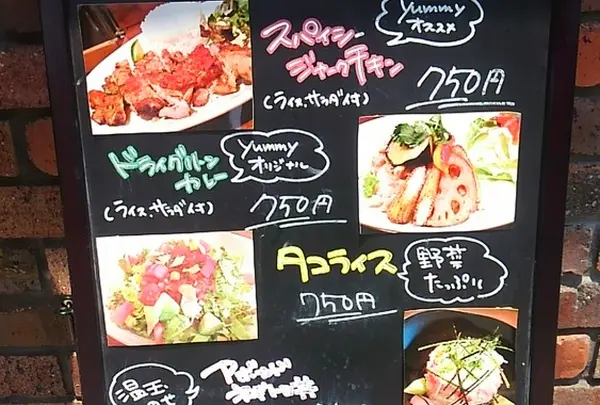 yummy
オススメ
スパイシー
ジャークチキン
750円
(ライス、サラダ付)
ドライグリーン
カレー
yummy
オリジナル
(ライス、サラダ付)
750円
タコライス
野菜
たっぷり
750円
温玉